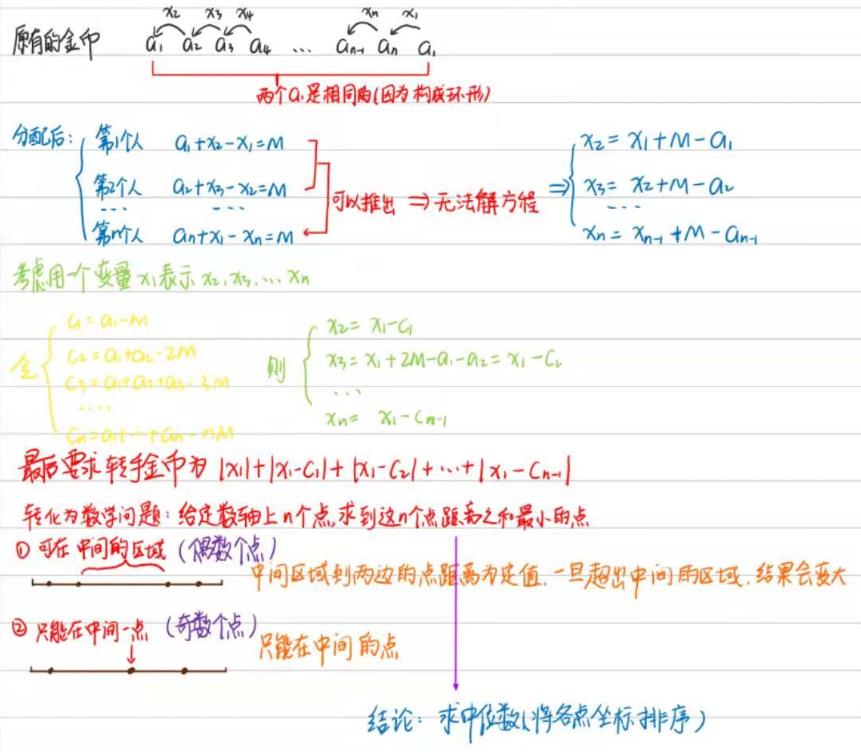 x₂ x₃ x₄ xₙ x₁
原有的金币 a₁ a₂ a₃ a₄ … aₙ₋₁ aₙ a₁
两个a₁是相同的(因为构成环形)
分配后: 第1个人 a₁+x₂-x₁=M
第2个人 a₂+x₃-x₂=M
……
第n个人 aₙ+x₁-xₙ=M
可以推出 ⇒ 无法解方程 ⇒
x₂ = x₁+M-a₁
x₃ = x₂+M-a₂
……
xₙ = xₙ₋₁+M-aₙ₋₁
考虑用一个变量x₁表示x₂,x₃,…xₙ
令
c₁=a₁-M
c₂=a₁+a₂-2M
c₃=a₁+a₂+a₃-3M
……
cₙ=a₁+…+aₙ-nM
则
x₂= x₁-c₁
x₃= x₁+2M-a₁-a₂= x₁-c₂
……
xₙ= x₁-cₙ₋₁
最后要求转手金币为 |x₁|+|x₁-c₁|+|x₁-c₂|+…+|x₁-cₙ₋₁|
转化为数学问题: 给定数轴上n个点,求到这n个点距离之和最小的点
① 可在中间的区域 (偶数个点)
中间区域到两边的点距离为定值,一旦超出中间的区域,结果会变大
② 只能在中间一点 (奇数个点)
只能在中间的点
结论: 求中位数(将各点坐标排序)